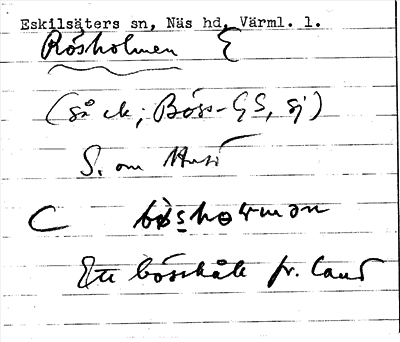 Eskilsäters sn, Näs hd, Värml. l.
Bösholmen
(så ek; Böss- GS, sj)
S. om
C bösholmən
Ett bösshåll fr. land